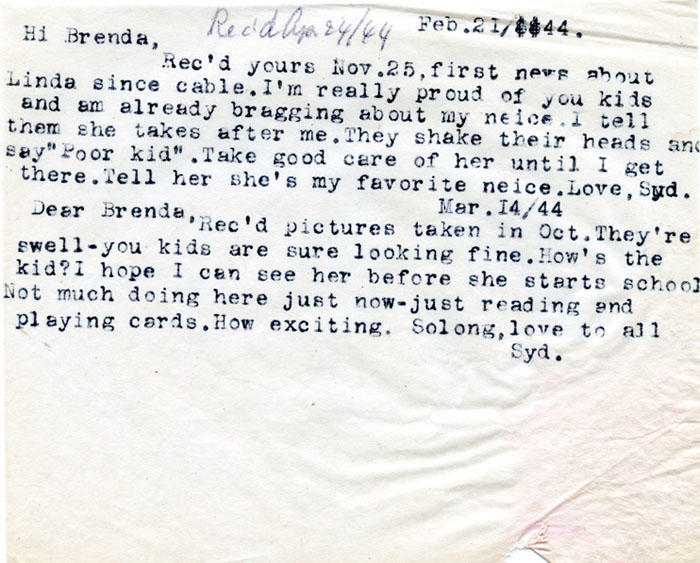 Rec'd Apr 24/44
Feb.21/44.
Hi Brenda,
Rec'd yours Nov.25,first news about
Linda since cable.I'm really proud of you kids
and am already bragging about my neice.I tell
them she takes after me.They shake their heads and
say"Poor kid".Take good care of her until I get
there.Tell her she's my favorite neice.Love,Syd.
Mar.14/44
Dear Brenda,
Rec'd pictures taken in Oct.They're
swell-you kids are sure looking fine.How's the
kid?I hope I can see her before she starts school
Not much doing here just now-just reading and
playing cards.How exciting. Solong,love to all
Syd.